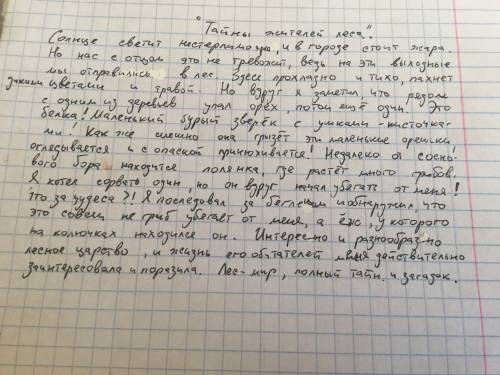 "Тайны жителей леса".
Солнце светит нестерпимо, и в городе стоит жара.
Но нас с отцом это не тревожит, ведь на эти выходные
мы отправились в лес. Здесь прохладно и тихо, пахнет
дикими цветами и травой. Но вдруг я заметил, что рядом
с одним из деревьев упал орех, потом ещё один! Это
белка! Маленький бурый зверёк с ушками-кисточка-
ми. Как же смешно она грызёт эти маленькие орешки,
оглядывается и с опаской принюхивается! Недалеко от сосно-
вого бора находится полянка, где растёт много грибов.
Я хотел сорвать один, но он вдруг начал убегать от меня!
Что за чудеса?! Я последовал за беглецом и обнаружил, что
это совсем не гриб убегает от меня, а ёж, у которого
на колючках находился он. Интересно и разнообразно
лесное царство, и жизнь его обитателей меня действительно
заинтересовала и поразила. Лес-мир, полный тайн и загадок.